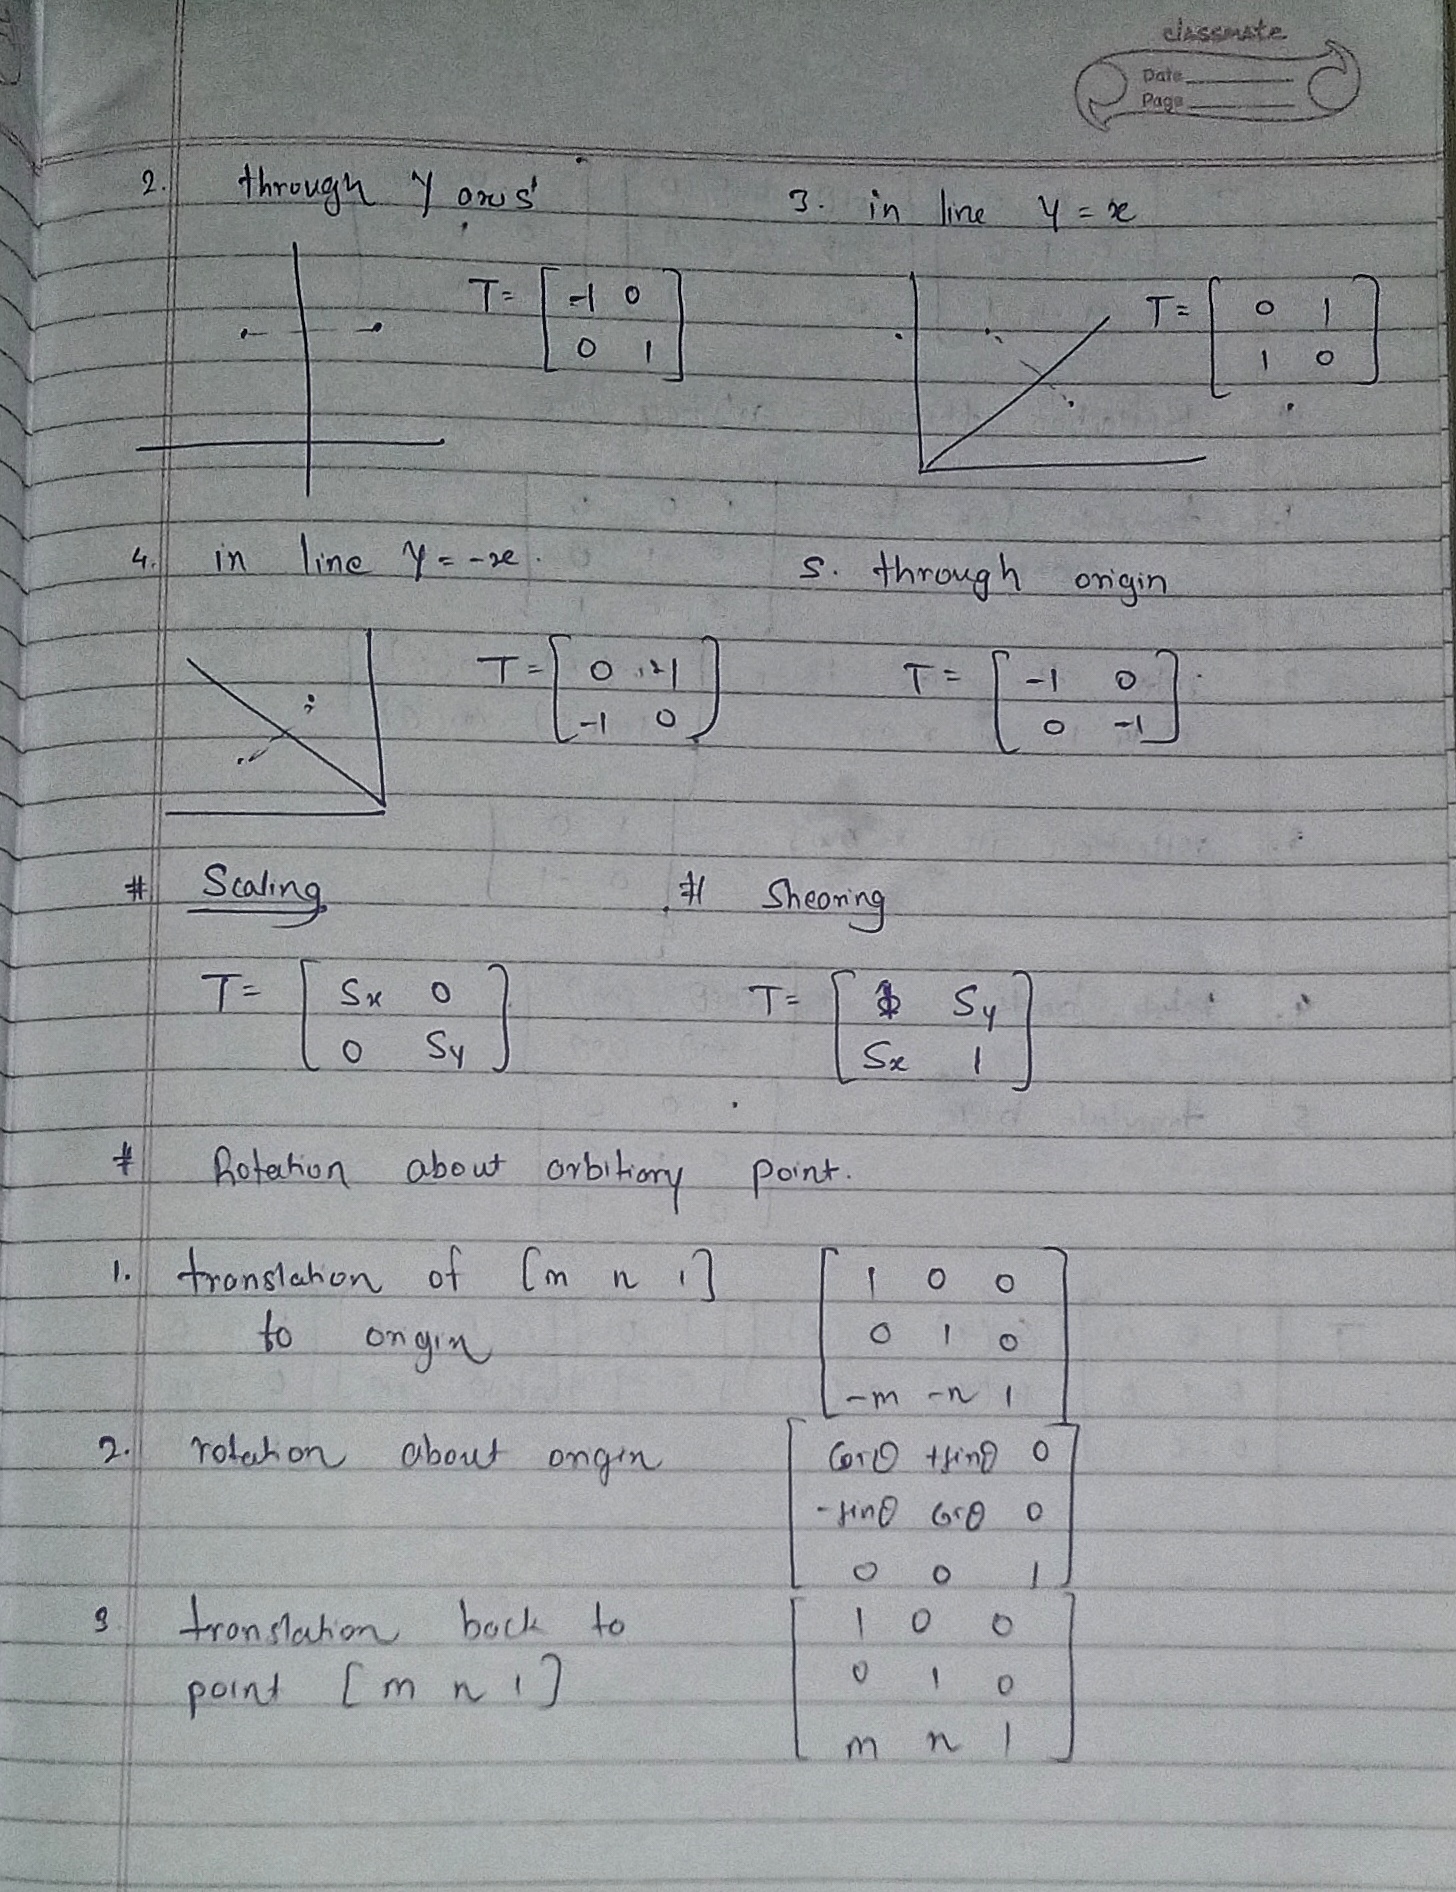 classmate
Date
Page
2. through Y axis
T = [ -1 0
0 1 ]
3. in line y = x
T = [ 0 1
1 0 ]
4. in line y = -x.
T = [ 0 -1
-1 0 ]
5. through origin
T = [ -1 0
0 -1 ]
# Scaling
T = [ Sx 0
0 Sy ]
# Shearing
T = [ 1 Sy
Sx 1 ]
# Rotation about orbitiary point.
1. translation of [m n 1]
to origin
[ 1 0 0
0 1 0
-m -n 1 ]
2. rotation about origin
[ cosθ +sinθ 0
-sinθ cosθ 0
0 0 1 ]
3 translation back to
point [m n 1]
[ 1 0 0
0 1 0
m n 1 ]